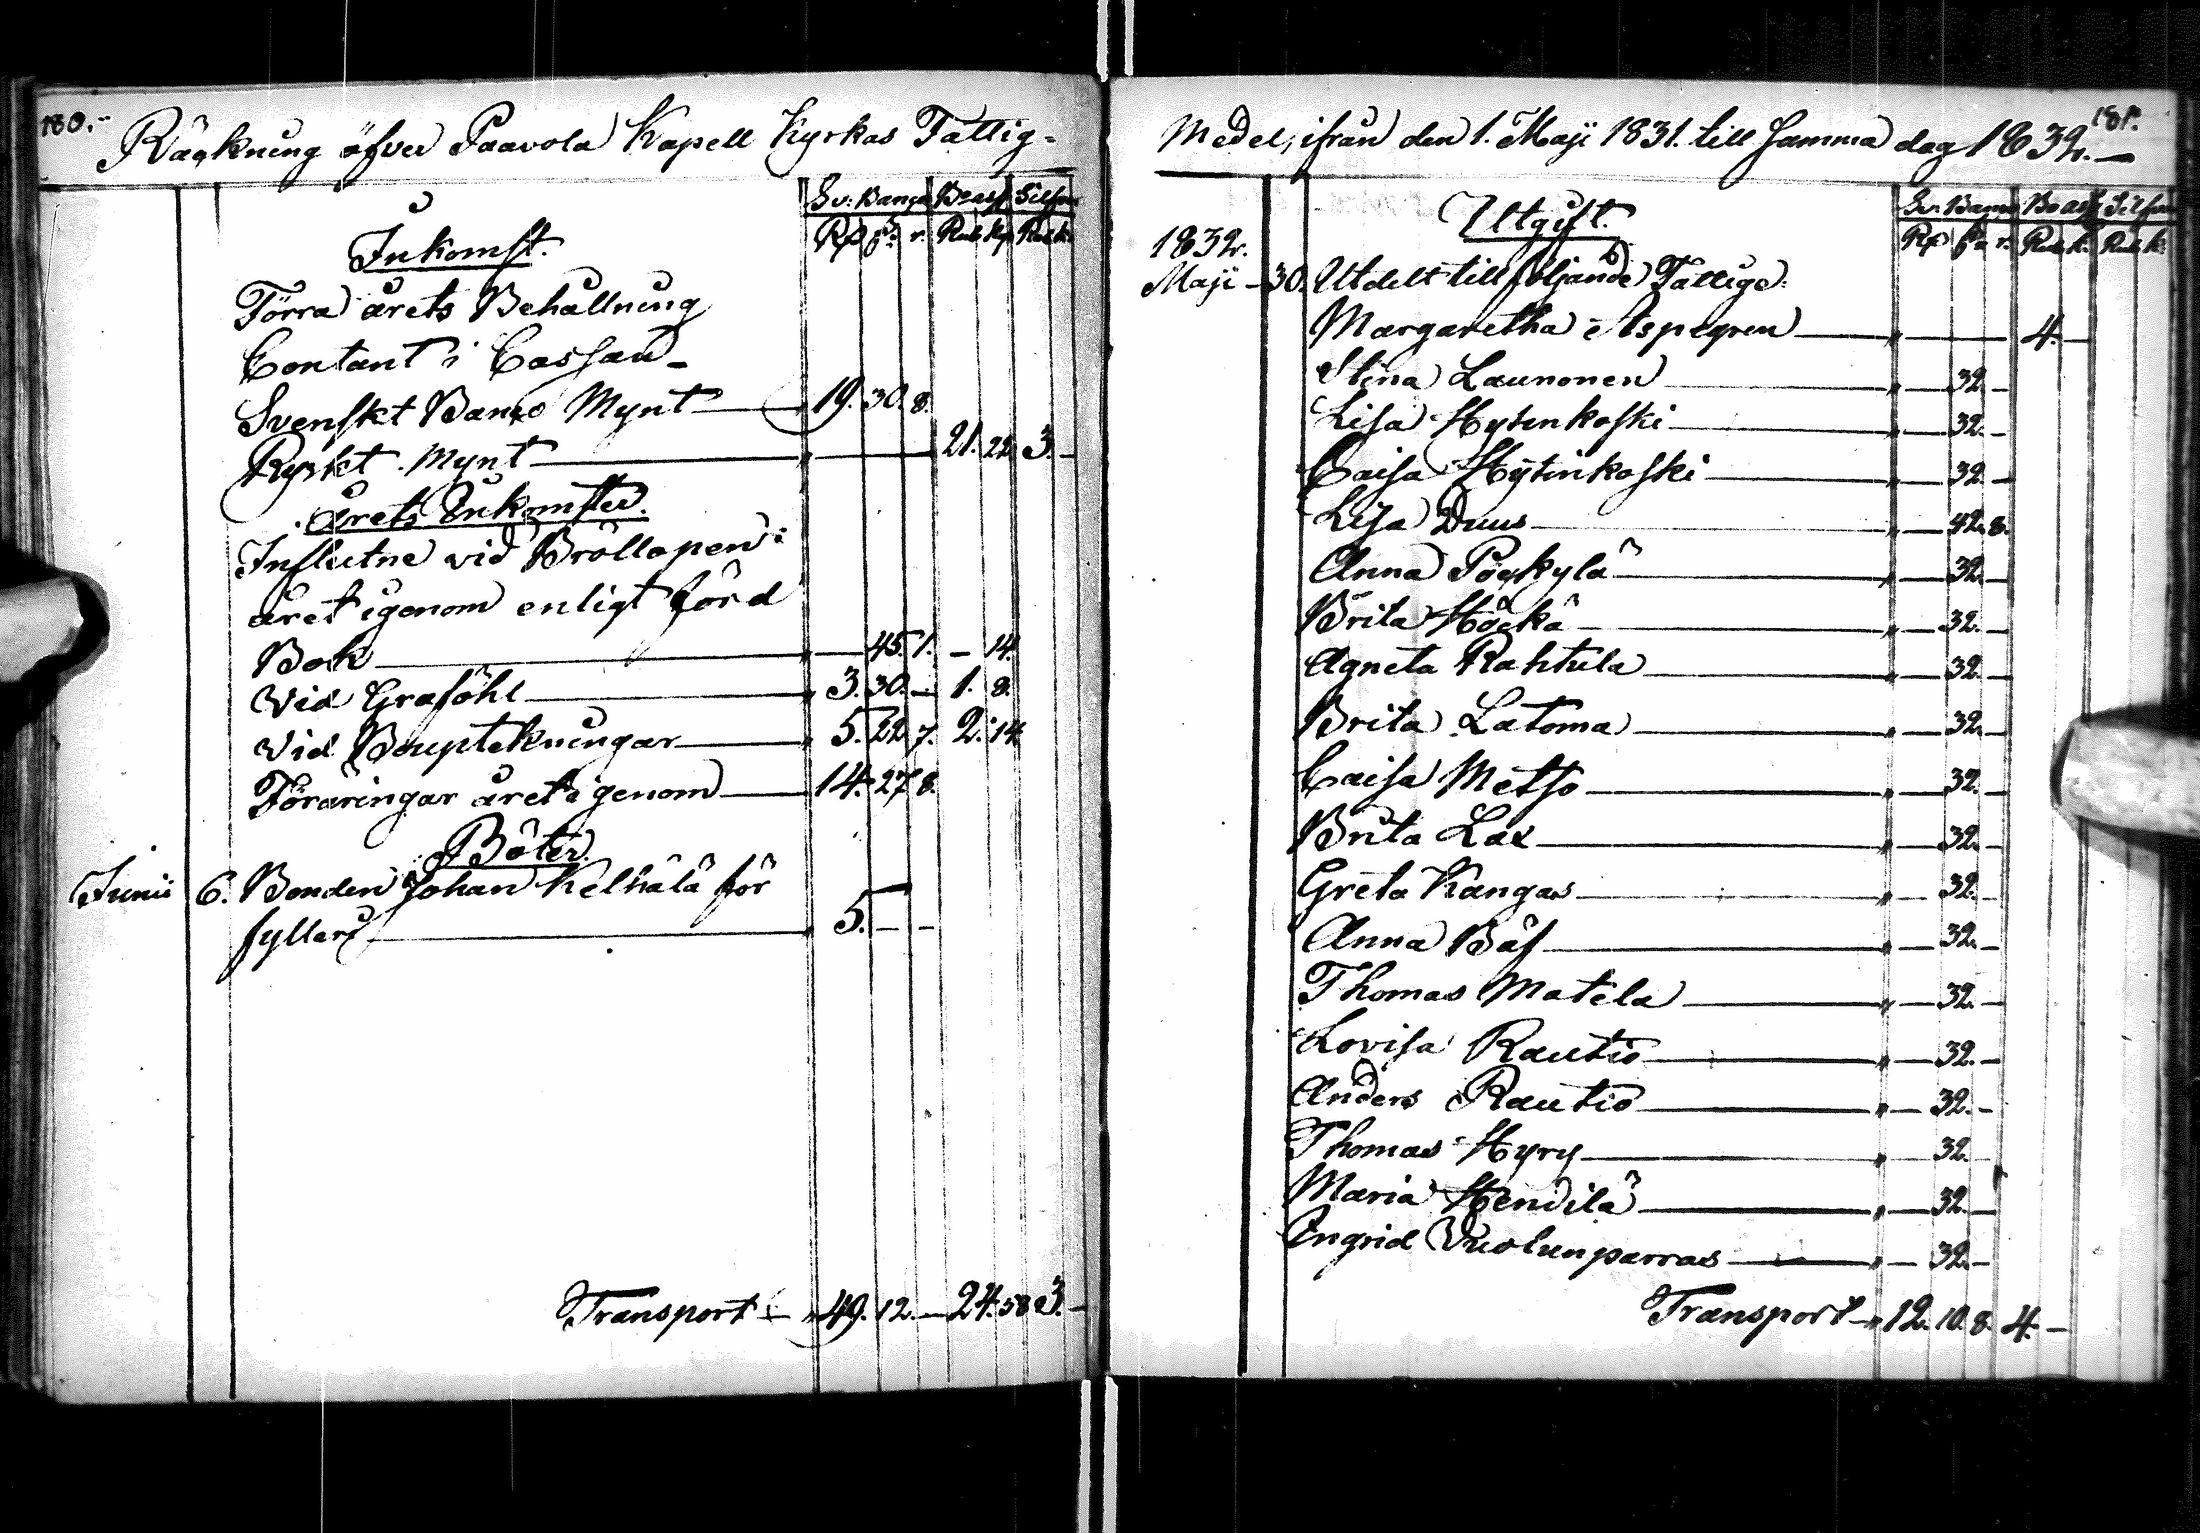 180.
Räkning öfver Paavola Kapell Kyrkas Fattig-
Sv: Banco Bc ass Silfver
Rd s. r. Rub. Kop Rub k.
Inkomst.
Förra årets Behållning
Contant i Cassan
Svenskt Banco Mynt 19. 30. 8.
Ryskt Mynt 21. 22 3. -
Årets Inkomster.
Influtne vid Bröllopen
året igenom enligt förd
Bok - 45. 1. - 14.
Vid Graföhl 3. 30. - 1. 8.
Vid Bouptekningar 5. 22. 7. 2. 14
Föräringar året igenom 14. 27 8.
Böter.
Junii 6. Bonden Johan Kelhälä för
fylleri 5. - -
Transport 49. 12. - 24. 58 3. -
181.
Medel, ifrån den 1. Maji 1831. till samma dag 1832. -
Sv. Banco Bc ass Silfver
Rd s. r. Rub. k. Rub. k.
Utgift.
1832.
Maji - 30. Utdelt till följande Fattige:
Margaretha Aspegren 4. -
Stina Launonen - 32. -
Lisa Hytinkoski - 32. -
Caisa Hytinkoski - 32. -
Lisa Duus - 42. 8.
Anna Pöykylä - 32. -
Brita Höckä - 32. -
Agneta Rahtula - 32. -
Brita Latoma - 32. -
Caisa Metso - 32. -
Brita Lax - 32. -
Greta Kangas - 32. -
Anna Bås - 32. -
Thomas Matela - 32. -
Lovisa Rautio - 32. -
Anders Rautio - 32. -
Thomas Hyry - 32. -
Maria Hendilä - 32. -
Ingrid Vuolunparras - 32. -
Transport 12. 10. 8. 4. -